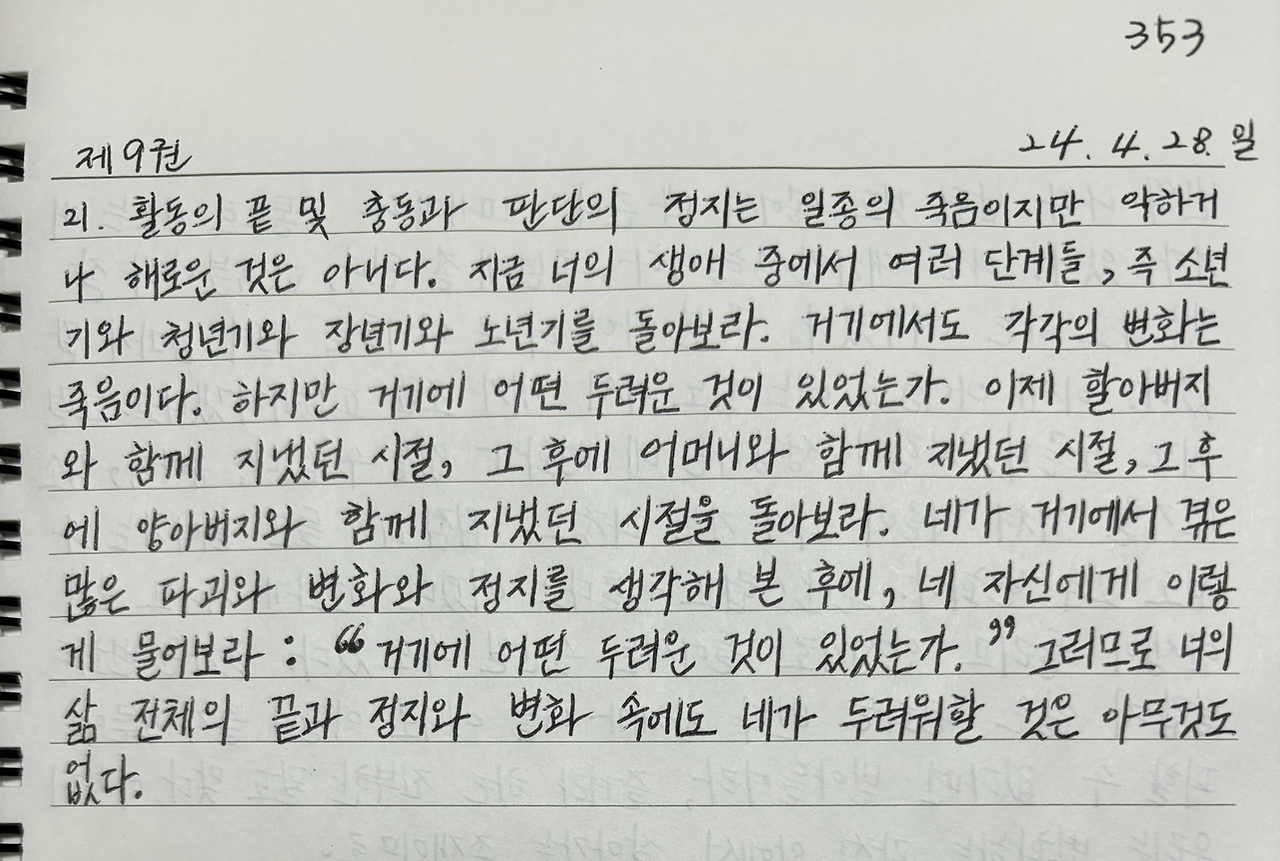 353
제9권 24. 4. 28. 일
21. 활동의 끝 및 충동과 판단의 정지는 일종의 죽음이지만 악하거
나 해로운 것은 아니다. 지금 너의 생애 중에서 여러 단계들, 즉 소년
기와 청년기와 장년기와 노년기를 돌아보라. 거기에서도 각각의 변화는
죽음이다. 하지만 거기에 어떤 두려운 것이 있었는가. 이제 할아버지
와 함께 지냈던 시절, 그 후에 어머니와 함께 지냈던 시절, 그 후
에 양아버지와 함께 지냈던 시절을 돌아보라. 네가 거기에서 겪은
많은 파괴와 변화와 정지를 생각해 본 후에, 네 자신에게 이렇
게 물어보라 : “거기에 어떤 두려운 것이 있었는가.” 그러므로 너의
삶 전체의 끝과 정지와 변화 속에도 네가 두려워할 것은 아무것도
없다.